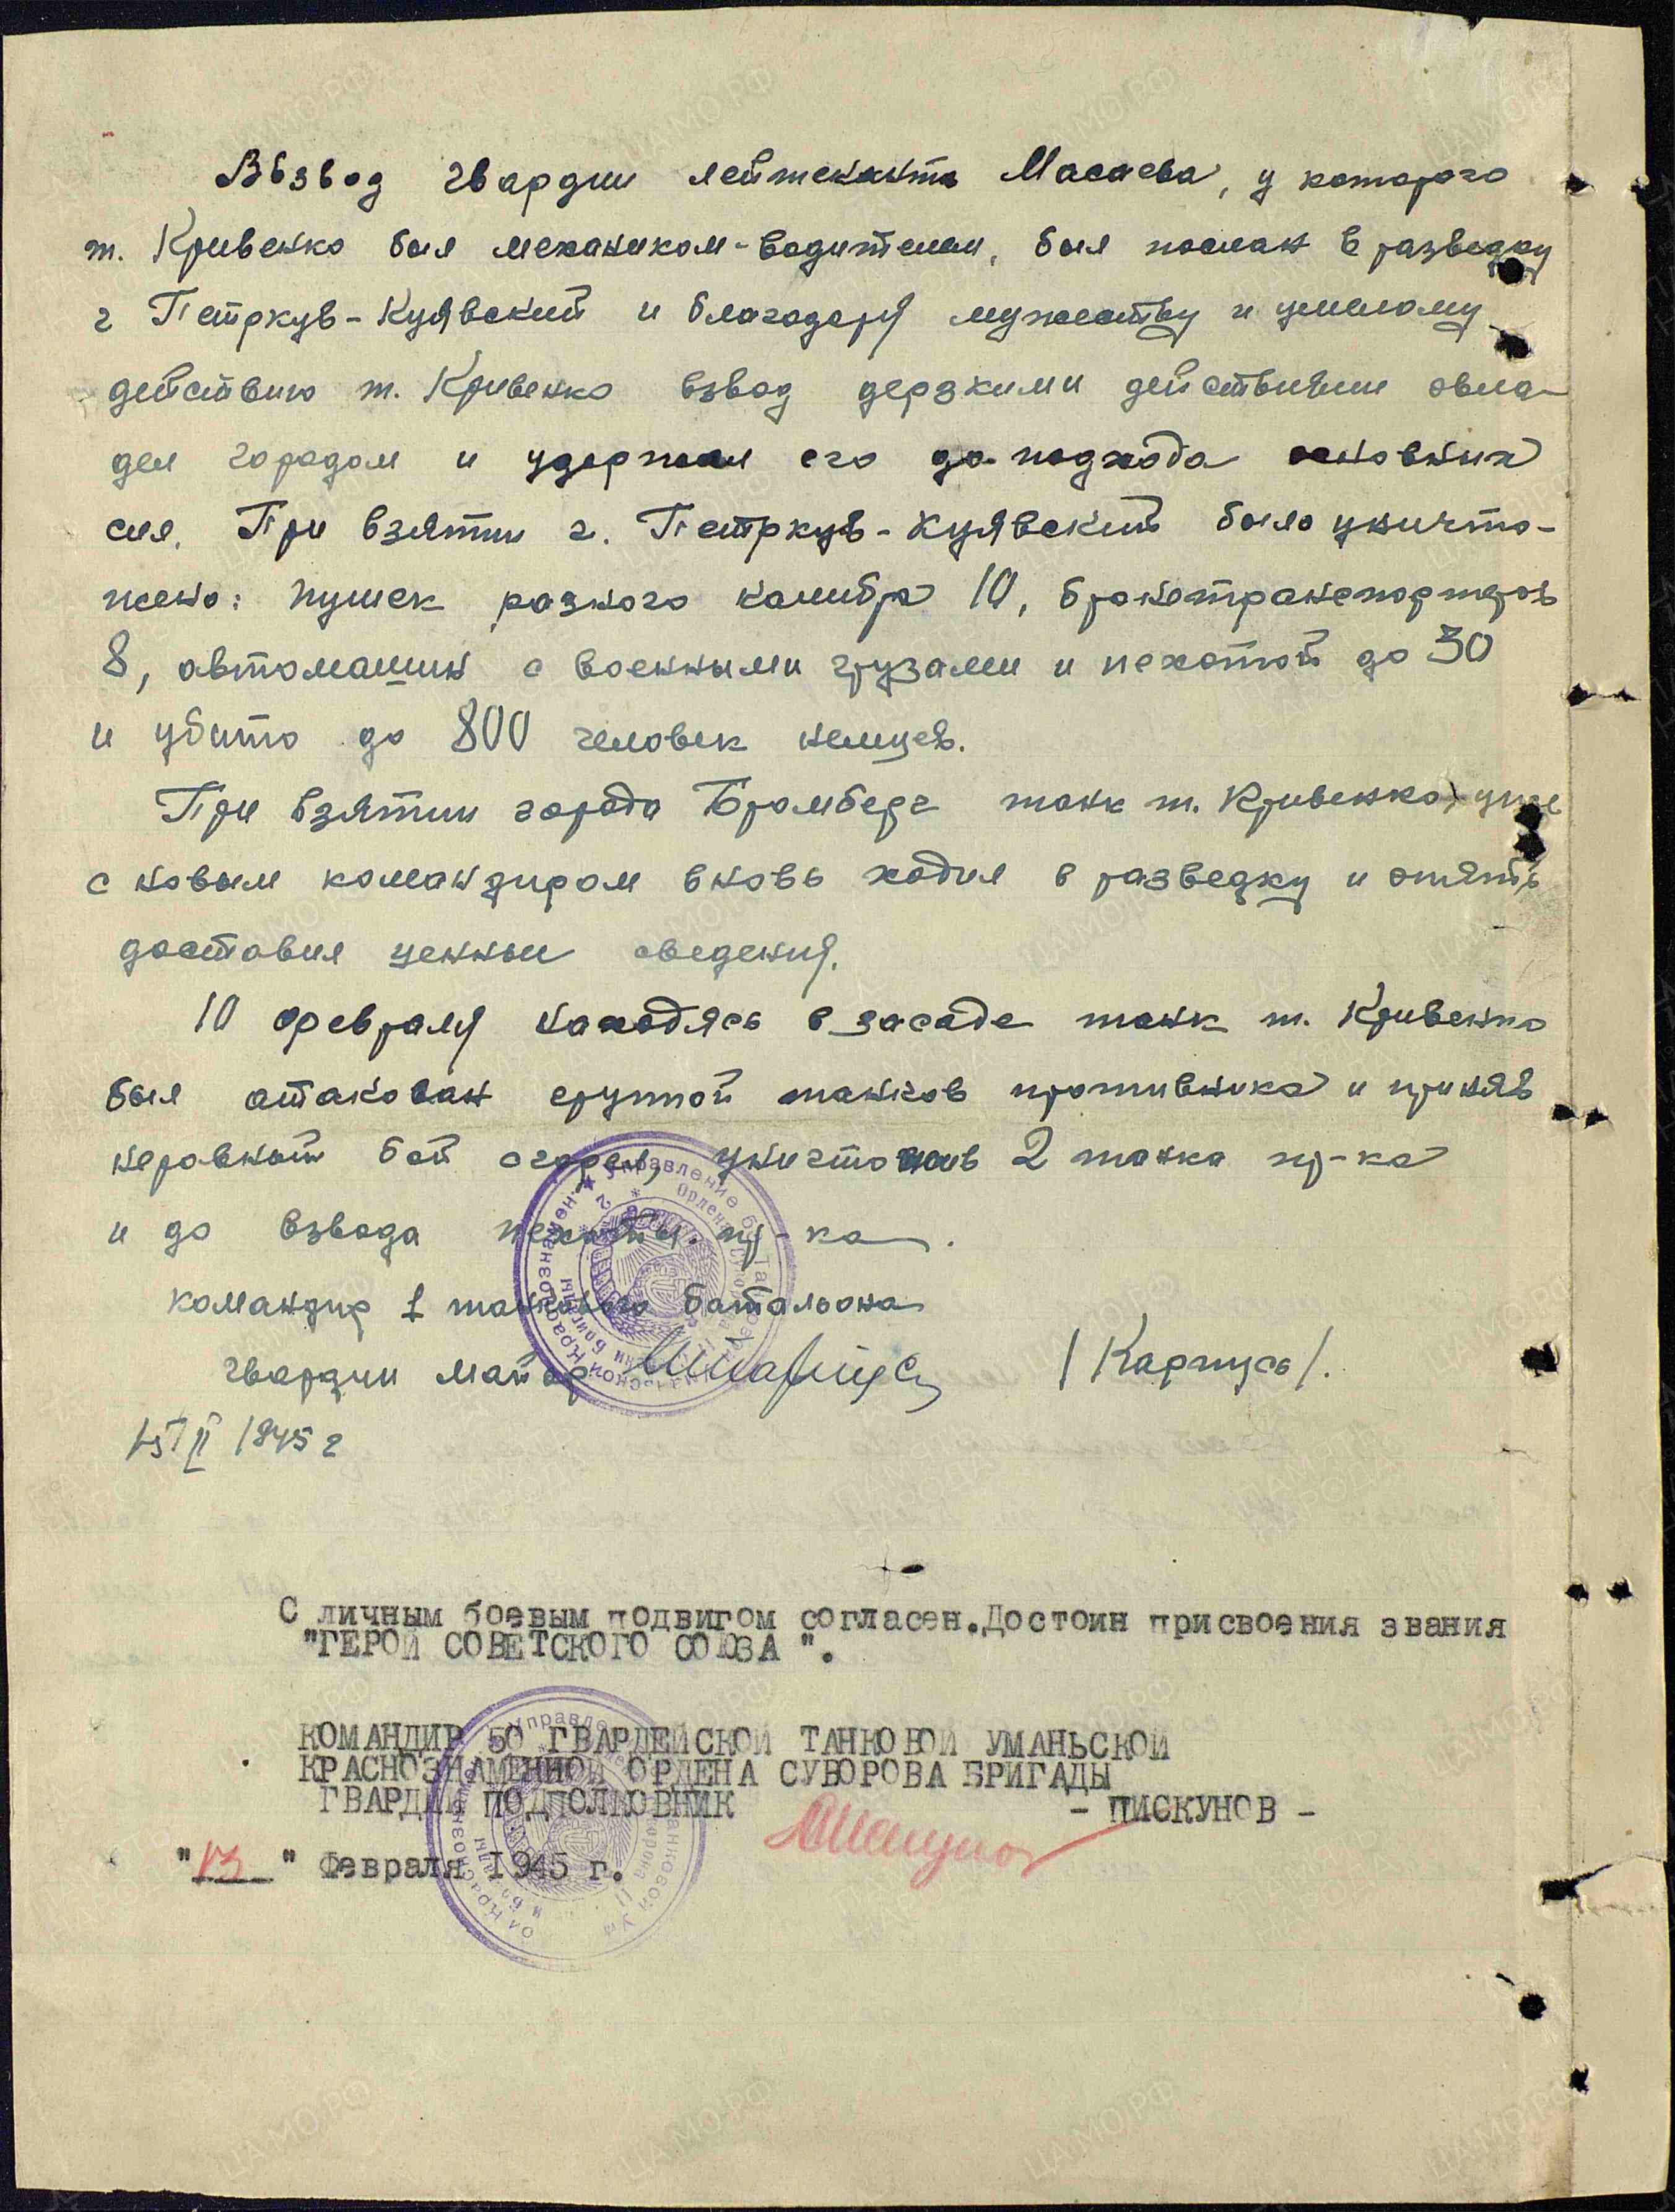 Взвод гвардии лейтенанта Масаева, у которого
т. Кривенко был механиком-водителем, был послан в разведку
г Петркув-Куявский и благодаря мужеству и умелому
действию т. Кривенко взвод дерзкими действиями овла-
дел городом и удержал его до подхода основных
сил. При взятии г. Петркув-Куявский было уничто-
жено: пушек разного калибра 10, бронетранспортеров
8, автомашин с военными грузами и пехотой до 50
и убито до 800 человек немцев.
При взятии города Бромберг танк т. Кривенко, уже
с новым командиром вновь ходил в разведку и опять
доставил ценные сведения.
10 февраля находясь в засаде танк т. Кривенко
был атакован группой танков противника и приняв
неравный бой сгорел, уничтожив 2 танка пр-ка
и до взвода пехоты пр-ка.
Командир 1 танкового батальона
гвардии майор /Карпусь/.
15/II 1945 г
С личным боевым подвигом согласен.Достоин присвоения звания
"ГЕРОЙ СОВЕТСКОГО СОЮЗА ".
КОМАНДИР 50 ГВАРДЕЙСКОЙ ТАНКОВОЙ УМАНЬСКОЙ
КРАСНОЗНАМЕННОЙ ОРДЕНА СУВОРОВА БРИГАДЫ
ГВАРДИИ ПОДПОЛКОВНИК - ПИСКУНОВ -
"13" Февраля 1945 г.